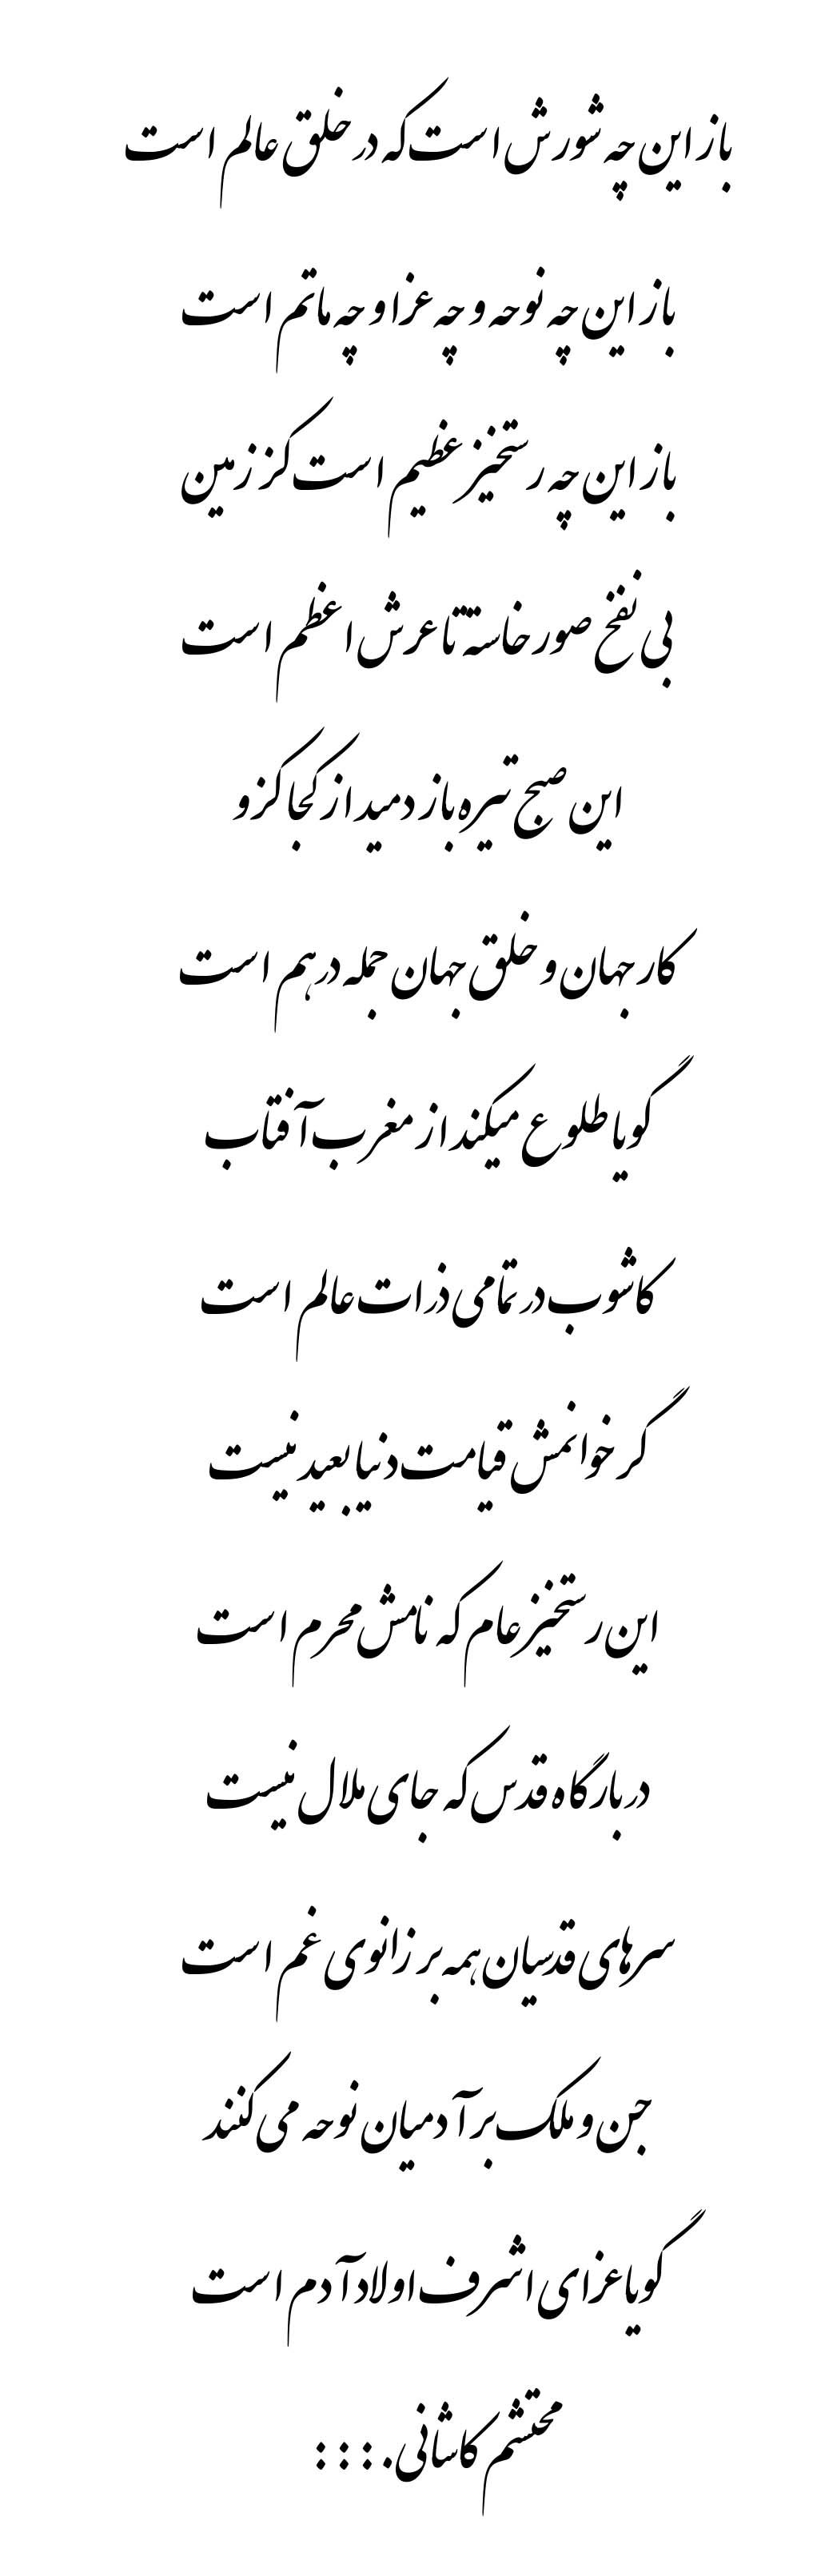 باز این چه شورش است که در خلق عالم است
باز این چه نوحه و چه عزا و چه ماتم است
باز این چه رستخیز عظیم است کز زمین
بی نفخ صور خاسته تا عرش اعظم است
این صبح تیره باز دمید از کجا کزو
کار جهان و خلق جهان جمله درهم است
گویا طلوع میکند از مغرب آفتاب
کاشوب در تمامی ذرات عالم است
گر خوانمش قیامت دنیا بعید نیست
این رستخیز عام که نامش محرم است
در بارگاه قدس که جای ملال نیست
سرهای قدسیان همه بر زانوی غم است
جن و ملک بر آدمیان نوحه می کنند
گویا عزای اشرف اولاد آدم است
محتشم کاشانی.:::